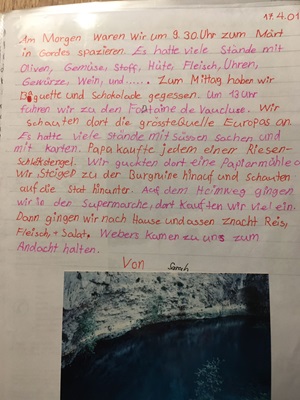 17.4.01
Am Morgen waren wir um 9.30 Uhr zum Märt
in Gordes spazieren. Es hatte viele Stände mit
Oliven, Gemüse, Stoff, Hüte, Fleisch, Uhren,
Gewürze, Wein, und...... . Zum Mittag haben wir
Baguette und Schokolade gegessen. Um 13 Uhr
fuhren wir zu den Fontaine de Vaucluse. Wir
schauten dort die grösste Quelle Europas an.
Es hatte viele stände mit süssen Sachen und
mit Karten. Papa kaufte jedem einen Riesen-
Schleckstengel. Wir guckten dort eine Papiermühle an
Wir steigen zu der Burgruine hinauf und schauten
auf die Stat hinunter. Auf dem Heimweg gingen
wir in den Supermarche, dort kauften wir viel ein.
Dann gingen wir nach Hause und assen Znacht Reis,
Fleisch, + Salat. Webers kamen zu uns zum
Andacht halten.
Von Sarah